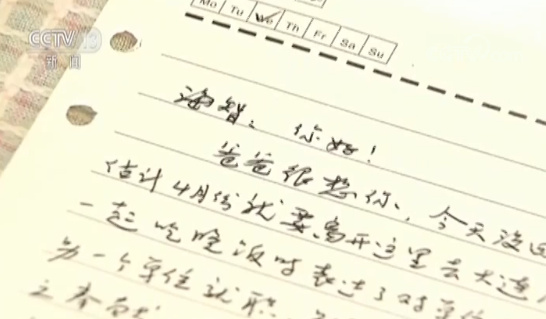 CCTV 13
新闻
Mo Tu We Th Fr Sa Su
海智：你好！
爸爸很想你，今天没
估计4月份就要离开这里去大连
一起吃晚饭时表达了对
另一个单位就职